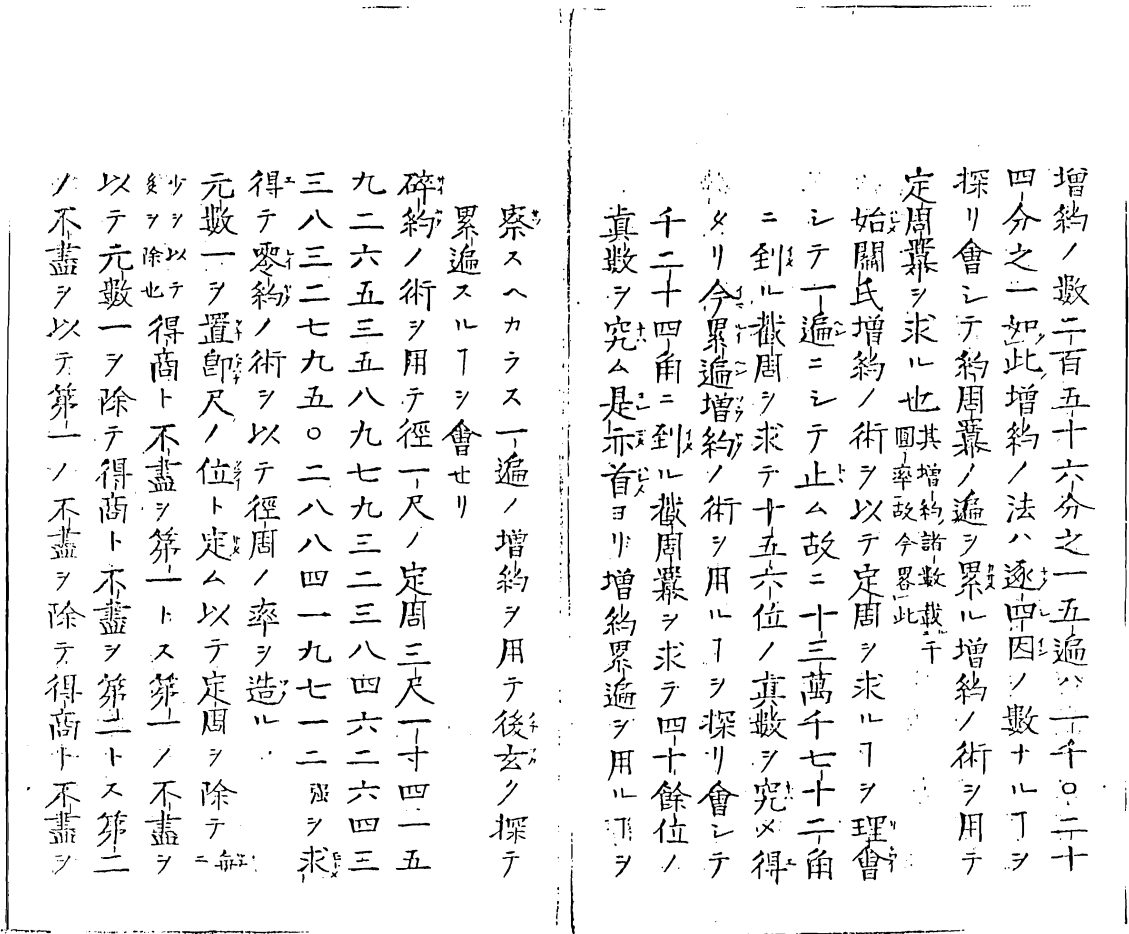 増約ノ數二百五十六分之一五遍ハ一千〇二十
四分之一如此増約ノ法ハ逐四因ノ數ナルヿヲ
探リ會シテ約周羃ノ遍ヲ累ル増約ノ術ヲ用テ
定周羃ヲ求ル也其増約諸數載于
圓率故今畧此
始關氏増約ノ術ヲ以テ定周ヲ求ルヿヲ理會
シテ一遍ニシテ止ム故ニ十三萬千七十二角
ニ到ル截周ヲ求テ十五六位ノ眞數ヲ究メ得
タリ今累遍増約ノ術ヲ用ルヿヲ探リ會シテ
千二十四角ニ到ル截周羃ヲ求テ四十餘位ノ
眞數ヲ究ム是示首ヨリ増約累遍ヲ用ルヿヲ
察スヘカラス一遍ノ増約ヲ用テ後玄ク探テ
累遍スルヿヲ會セリ
碎約ノ術ヲ用テ徑一尺ノ定周三尺一寸四一五
九二六五三五八九七九三二三八四六二六四三
三八三二七九五〇二八八四一九七一二強ヲ求
得テ零約ノ術ヲ以テ徑周ノ率ヲ造ル
元數一ヲ置卽尺ノ位ト定ム以テ定周ヲ除テ毎ニ
少ヲ以テ
多ヲ除也得商ト不盡ヲ第一トス第一ノ不盡ヲ
以テ元數一ヲ除テ得商ト不盡ヲ第二トス第二
ノ不盡ヲ以テ第一ノ不盡ヲ除テ得商ト不盡ヲ